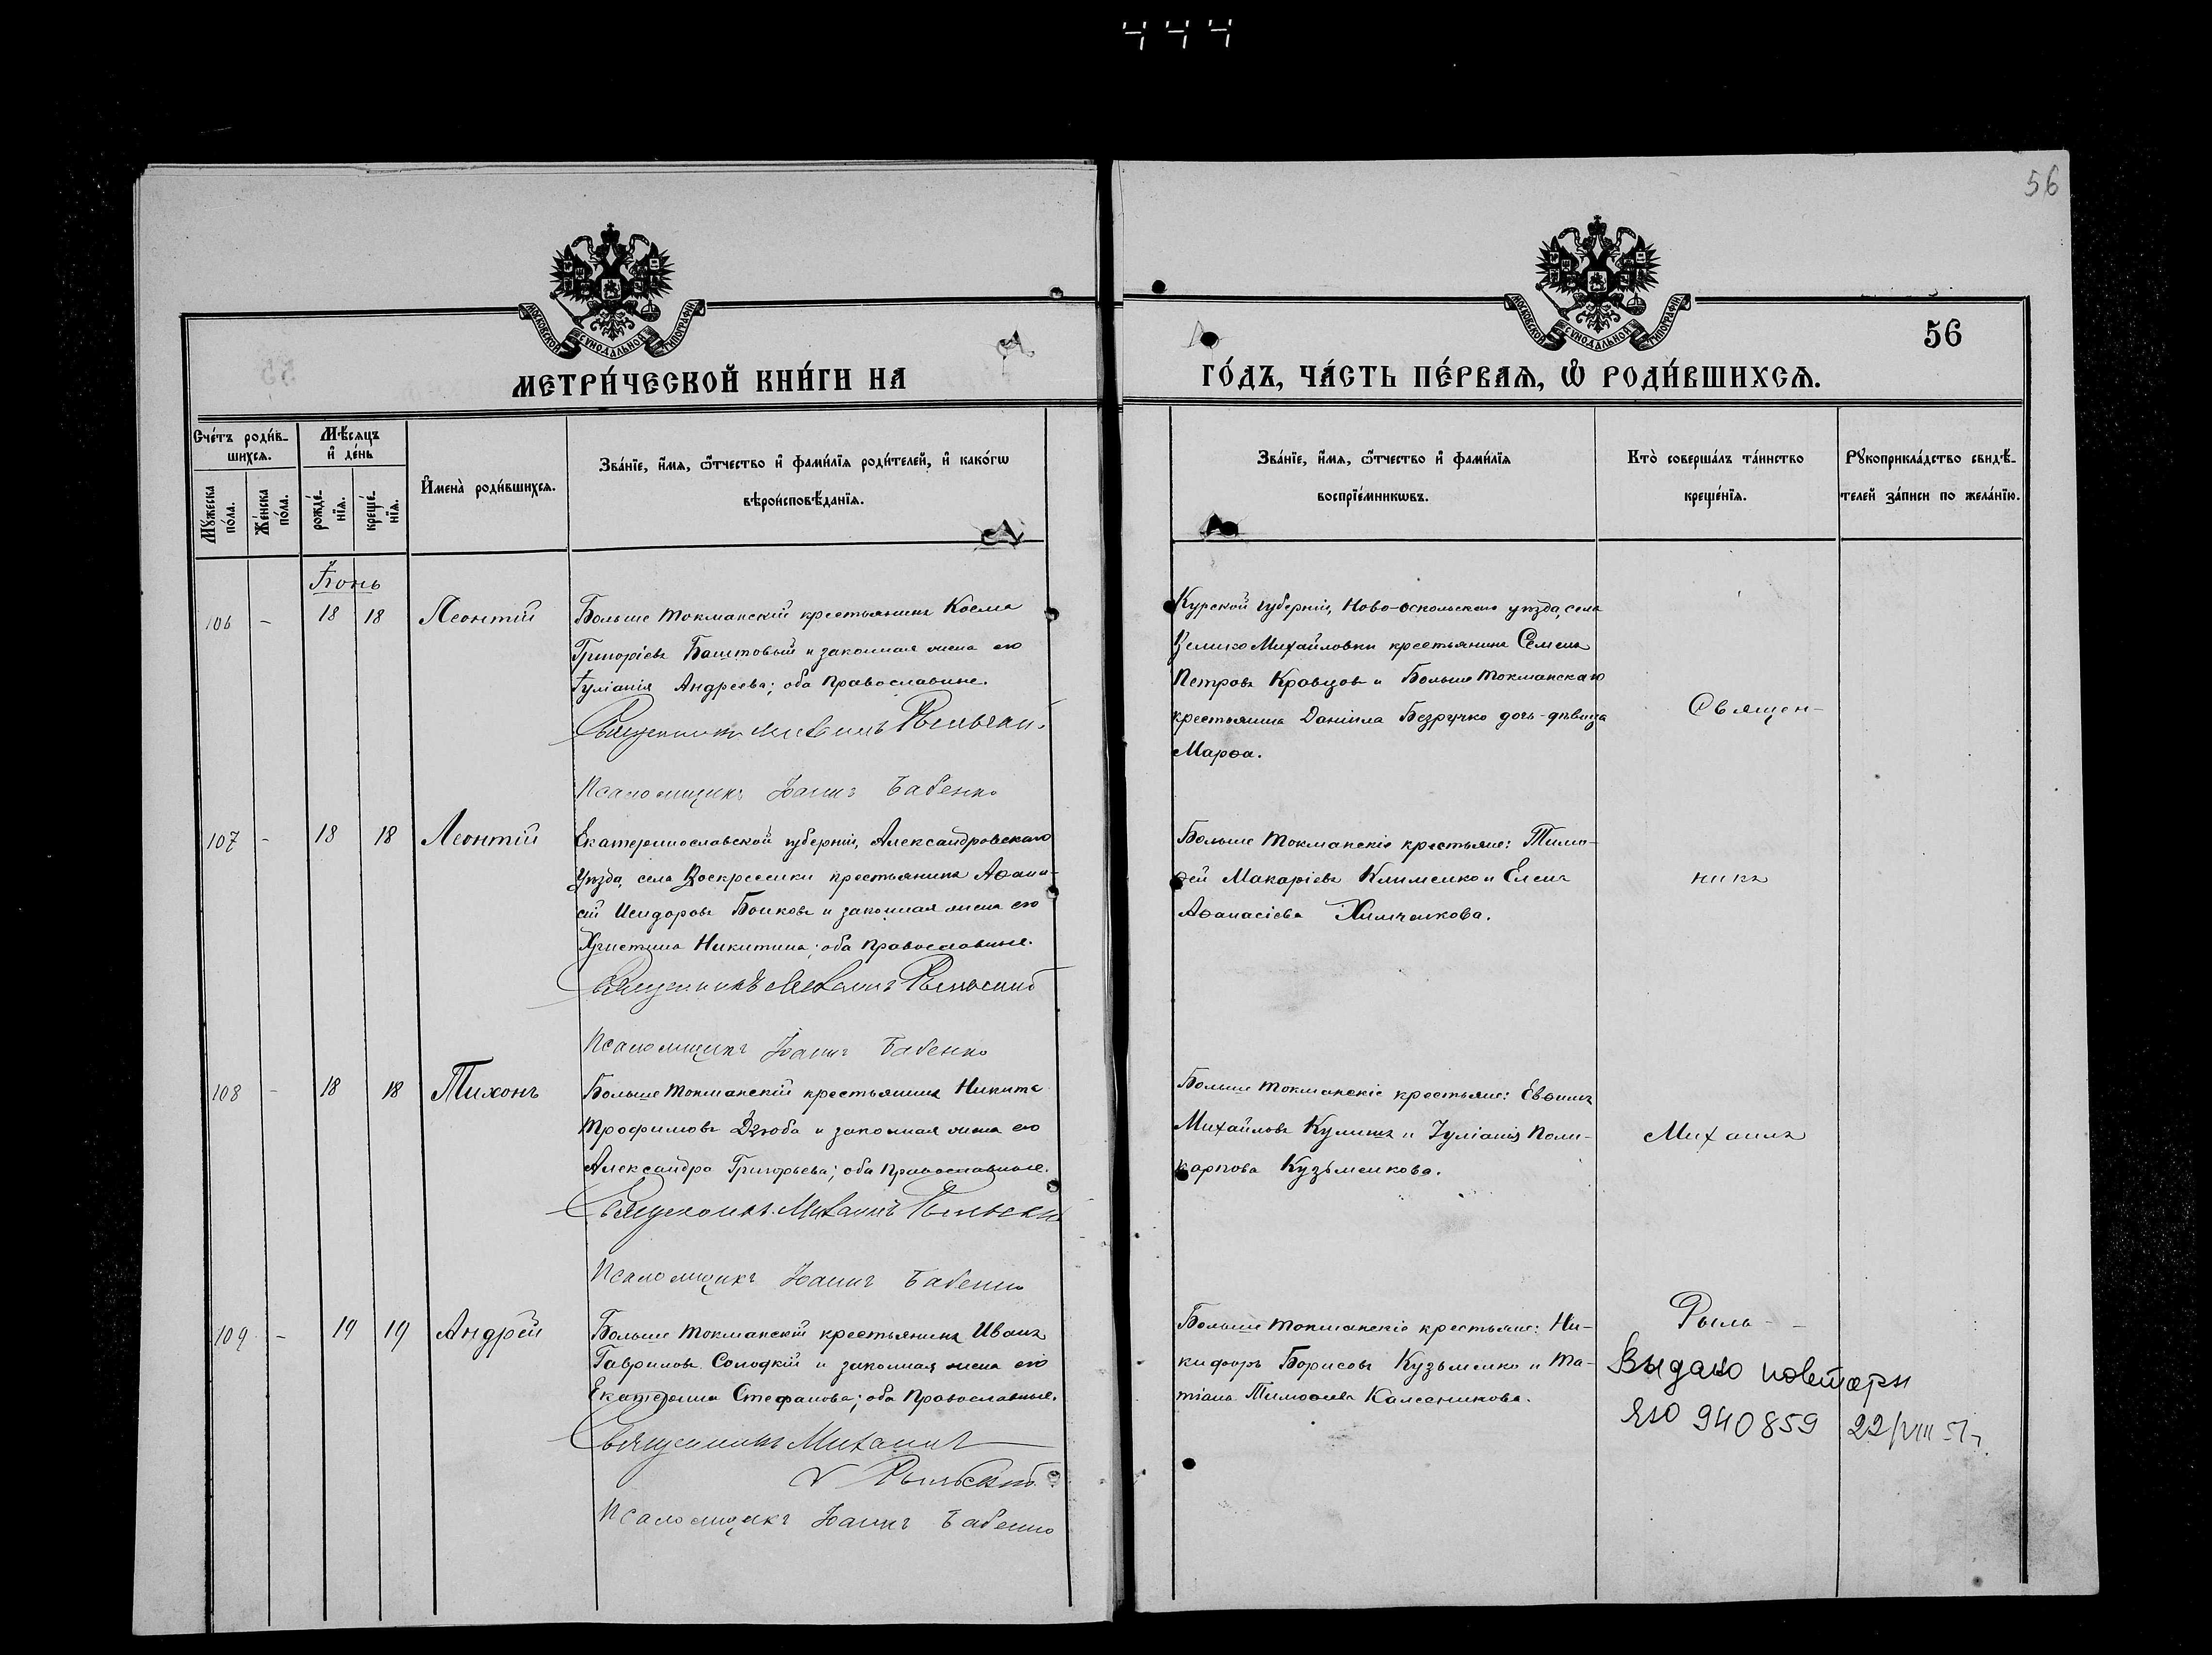 444
56
56
МОСКОВСКОЙ СѴНОДАЛЬНОЙ ТИПОГРАФІИ
МОСКОВСКОЙ СѴНОДАЛЬНОЙ ТИПОГРАФІИ
МЕТРИ́ЧЕСКОЙ КНИ́ГИ НА
ГО́ДЪ, ЧА́СТЬ ПЕ́РВАѦ, Ѡ҆ РОДИ́ВШИХСѦ.
Сче́тъ роди́в-
шихсѧ.
Мꙋ́жеска по́ла.
Же́нска по́ла.
Мѣ́сѧцъ
и҆ де́нь
рожде́-
нїѧ.
креще́-
нїѧ.
И҆мена̀ роди́вшихсѧ.
Зва́нїе, и҆́мѧ, ѻ҆́тчество и҆ фами́лїѧ роди́телей, и҆ како́гѡ
вѣроисповѣ́данїѧ.
Зва́нїе, и҆́мѧ, ѻ҆́тчество и҆ фами́лїѧ
воспрїе́мникѡвъ.
Кто̀ соверша́лъ та́инство
креще́нїѧ.
Рꙋкоприкла́дство свидѣ́-
телей за́писи по жела́нїю.
Іюнь
106 - 18 18 Леонтій
Больше Токманскій крестьянинъ Косма
Григоріевъ Баштовый и законная жена его
Іуліанія Андреева; оба православные.
Священникъ Михаилъ Рыльскій
Псаломщикъ Іоаннъ Бабенко
Курской губерніи, Ново-Оскольскаго уѣзда, села
Велико Михайловки крестьянинъ Семенъ
Петровъ Кравцовъ и Больше Токманскаго
крестьянина Даніила Безручко дочь-дѣвица
Марѳа.
Священ-
107 - 18 18 Леонтій
Екатеринославской губерніи, Александровскаго
уѣзда, села Воскресенки крестьянинъ Аѳана-
сій Исидоровъ Боиковъ и законная жена его
Христина Никитина; оба православные.
Священникъ Михаилъ Рыльскій
Псаломщикъ Іоаннъ Бабенко
Больше Токманскіе крестьяне: Тимо-
ѳей Макаріевъ Клименко и Елена
Аѳанасіева Химченкова.
никъ
108 - 18 18 Тихонъ
Больше Токманскій крестьянинъ Никита
Трофимовъ Дзюба и законная жена его
Александра Григорьева; оба православные.
Священникъ Михаилъ Рыльскій
Псаломщикъ Іоаннъ Бабенко
Больше Токманскіе крестьяне: Евѳимъ
Михайловъ Кулишъ и Іуліанія Поли-
карпова Кузьменкова.
Михаилъ
109 - 19 19 Андрей
Больше Токманскій крестьянинъ Иванъ
Гавриловъ Солодкій и законная жена его
Екатерина Стефанова; оба православные.
Священникъ Михаилъ
Рыльскій
Псаломщикъ Іоаннъ Бабенко
Больше Токманскіе крестьяне: Ни-
кифоръ Борисовъ Кузьменко и Та-
тіана Тимоѳеева Калесникова.
Рыль-
Выдано повторн
ЯЮ 940859 22/VIII